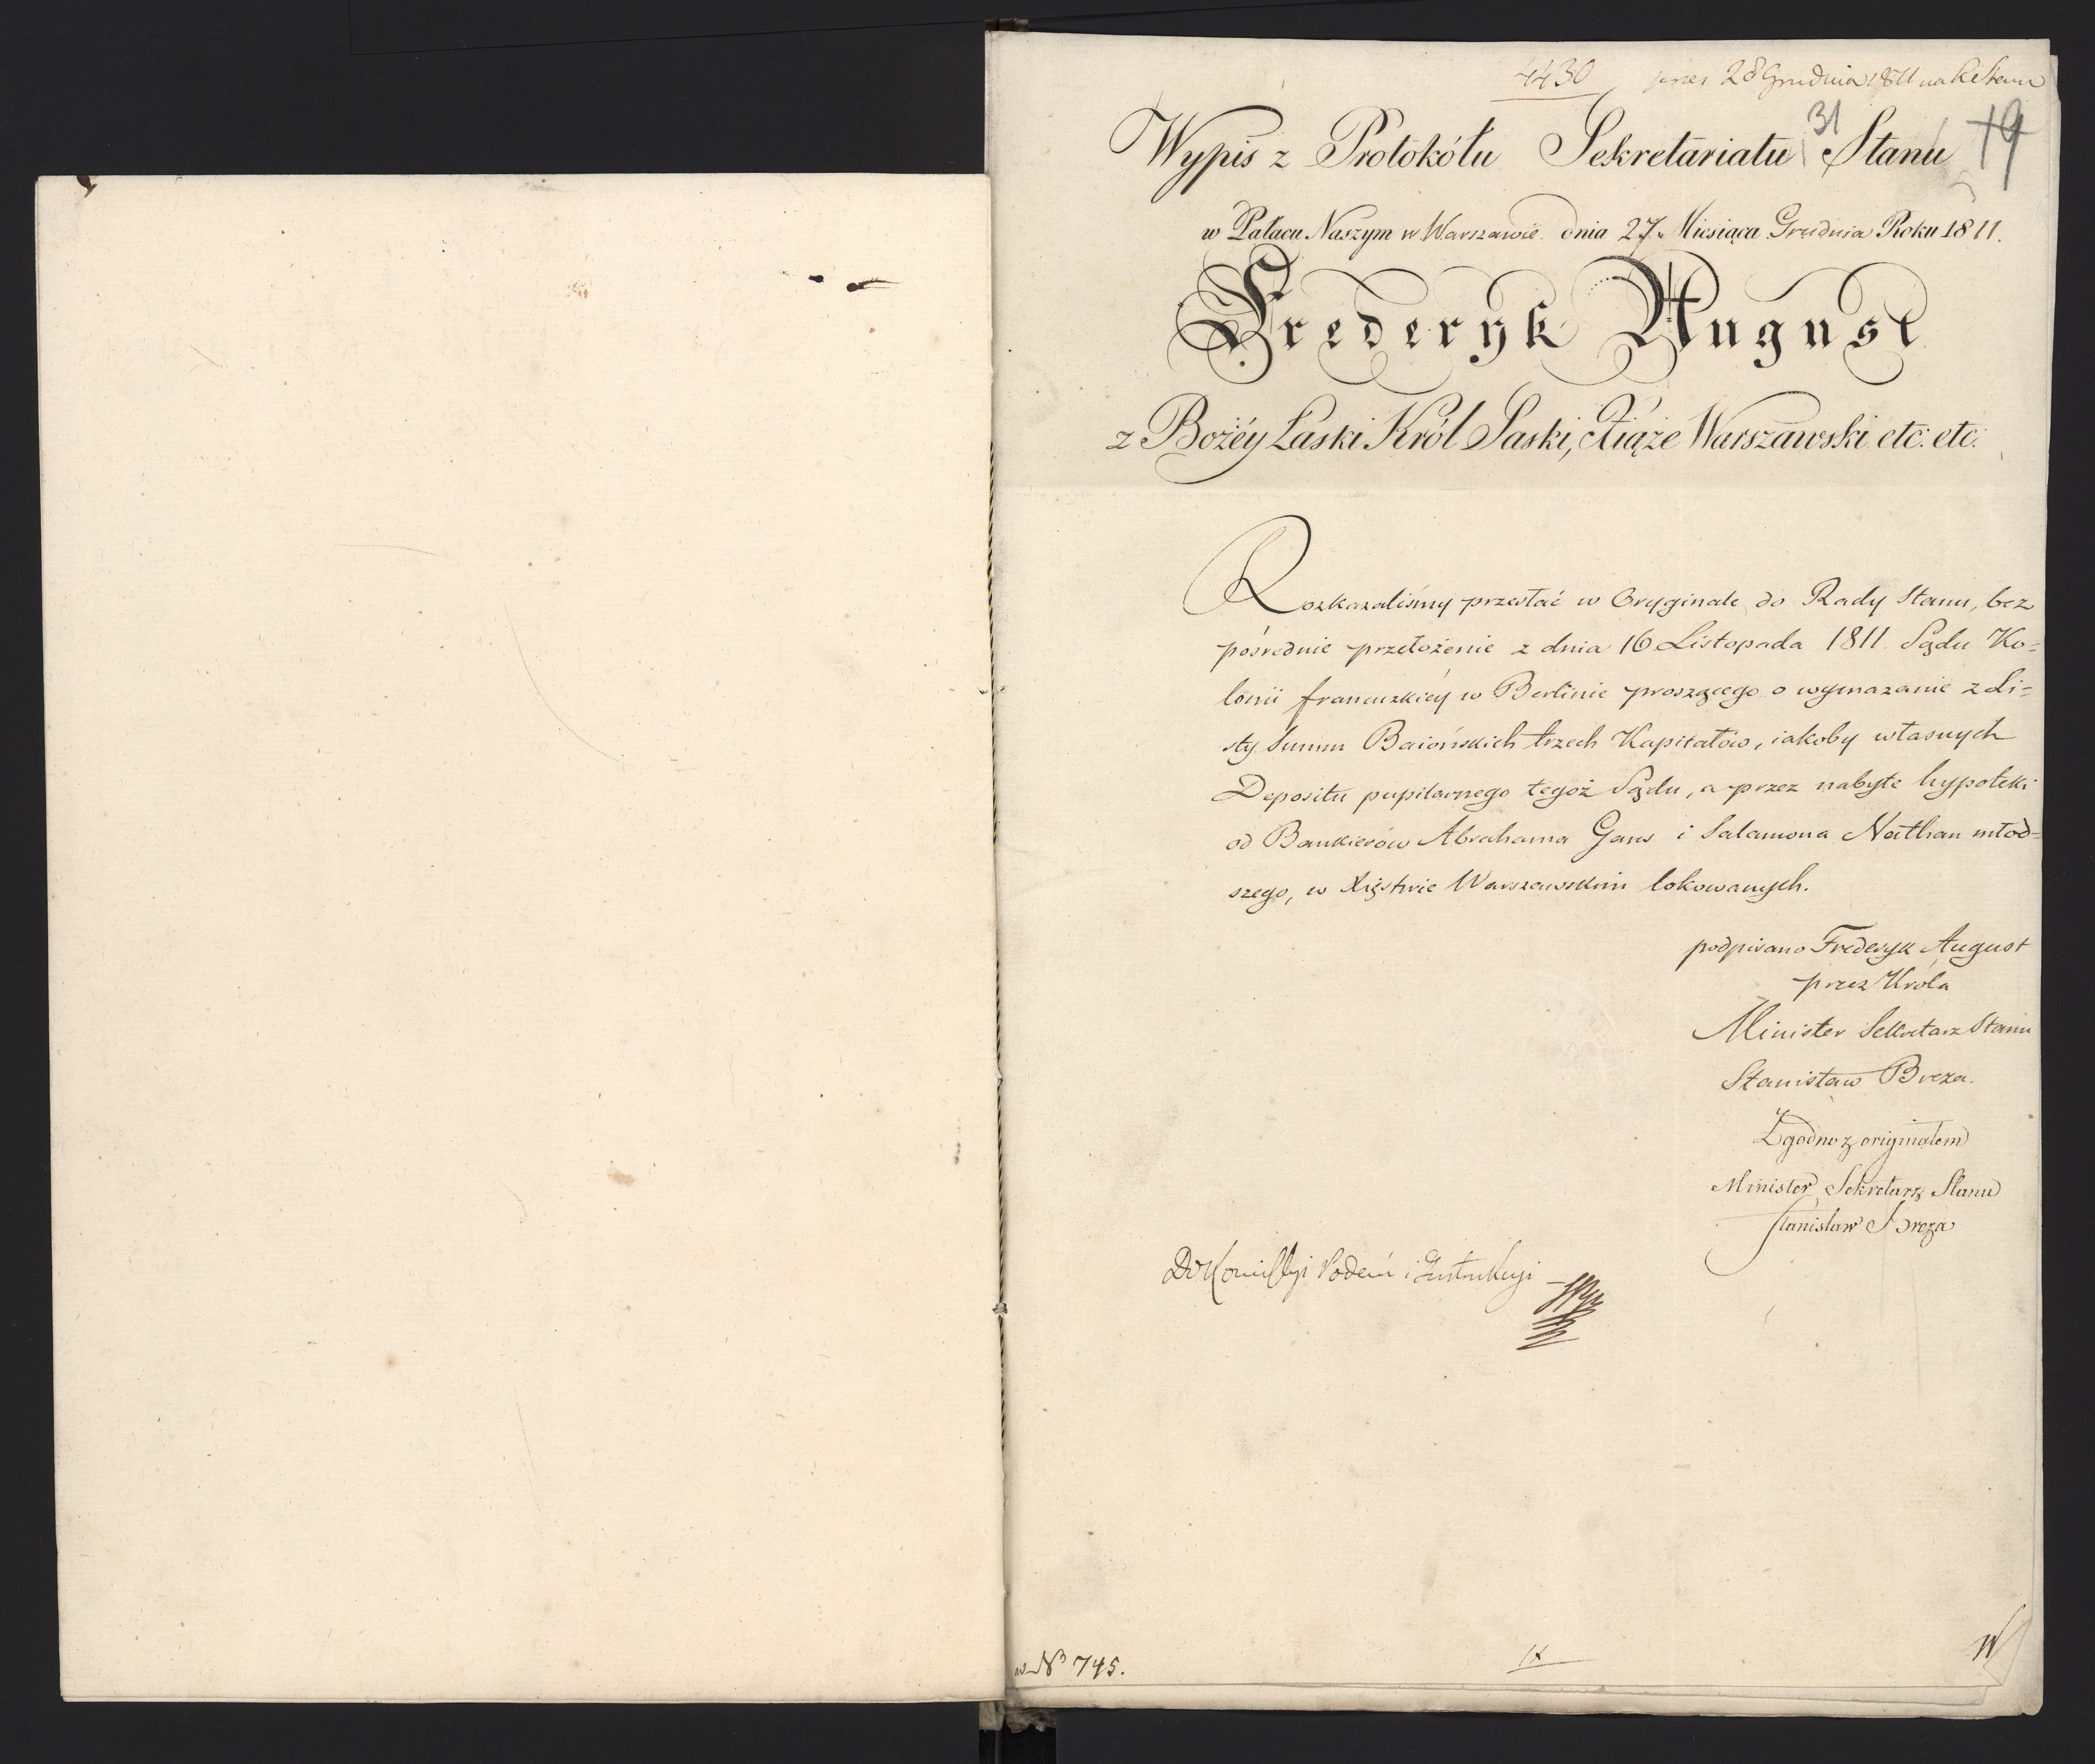 4430 prez. 28 Grudnia 1811 na R. Stanu
31
Wypis z Protokółu Sekretariatu Stanu 19
w Pałacu Naszym w Warszawie dnia 27 Miesiąca Grudnia Roku 1811.
Frederyk August
z Bożéy Łaski Król Saski, Xiąże Warszawski etc: etc:
Rozkazaliśmy przesłać w Oryginale do Rady Stanu, bez
pośrednie przełożenie z dnia 16 Listopada 1811. Sądu Ko=
lonii francuzkiéy w Berlinie proszącego o wymazanie z Li=
sty Summ Baiońskich trzech Kapitałów, iakoby własnych
Depositu pupilarnego tegoż Sądu, a przez nabyte hypoteki
od Bankierów Abrahama Gans i Salamona Nathan młod=
szego, w Xięstwie Warszawskim lokowanych.
podpisano Frederyk August
przez Króla
Minister Sekretarz Stanu
Stanisław Breza.
Zgodno z originałem
Minister Sekretarz Stanu
Stanisław Breza
Do Kommissyi Podań i Instrukcyi
w N° 745.